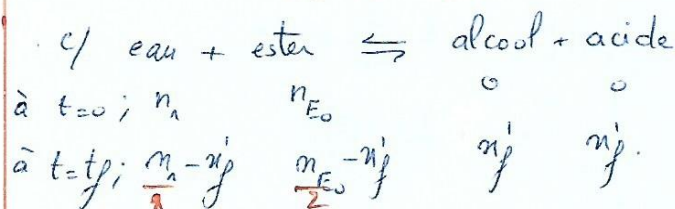 c/ eau + ester ⇆ alcool + acide
à t=0 ; n₁ n_E₀ 0 0
à t=tf ; n₁-x'f n_E₀-x'f x'f x'f.
1 2